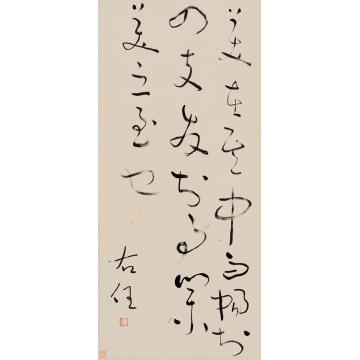 美在其中而暢於
四支發於事業
美之至也
右任